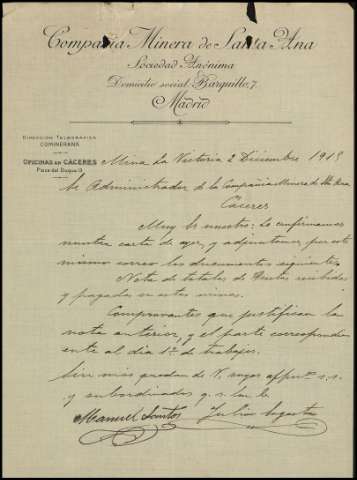 Compañia Minera de Santa Ana
Sociedad Anónima
Domicilio social: Barquillo, 7
Madrid
DIRECCIÓN TELEGRÁFICA
COMINERANA
OFICINAS EN CÁCERES
Plaza del Duque 11
Mina La Victoria 2 Diciembre 1915
Sr Administrador de la Compañia Minera de Sta Ana
Cáceres
Muy Sr nuestro: Le confirmamos
nuestra carta de ayer, y adjuntamos, por este
mismo correo los documentos siguientes
Nota de totales de recibidas
y pagadas en estas minas.
Comprovantes que justifican la
nota anterior, y el parte correspondi
ente al dia 1º de trabajos.
Sin mas quedan de V. suyos s.s.
y subordinados q. s. m. b.
Manuel Santos Julio